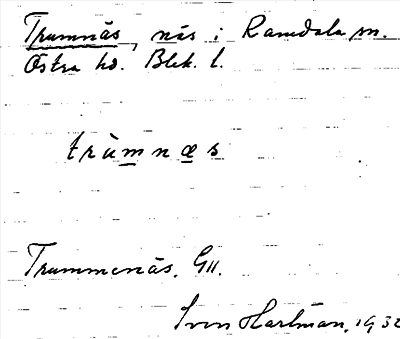 Trumnäs, näs i Ramdala sn.
Östra hd. Blek. l.
trùmnæs
Trummenäs. GII.
Sven Hartman, 1932